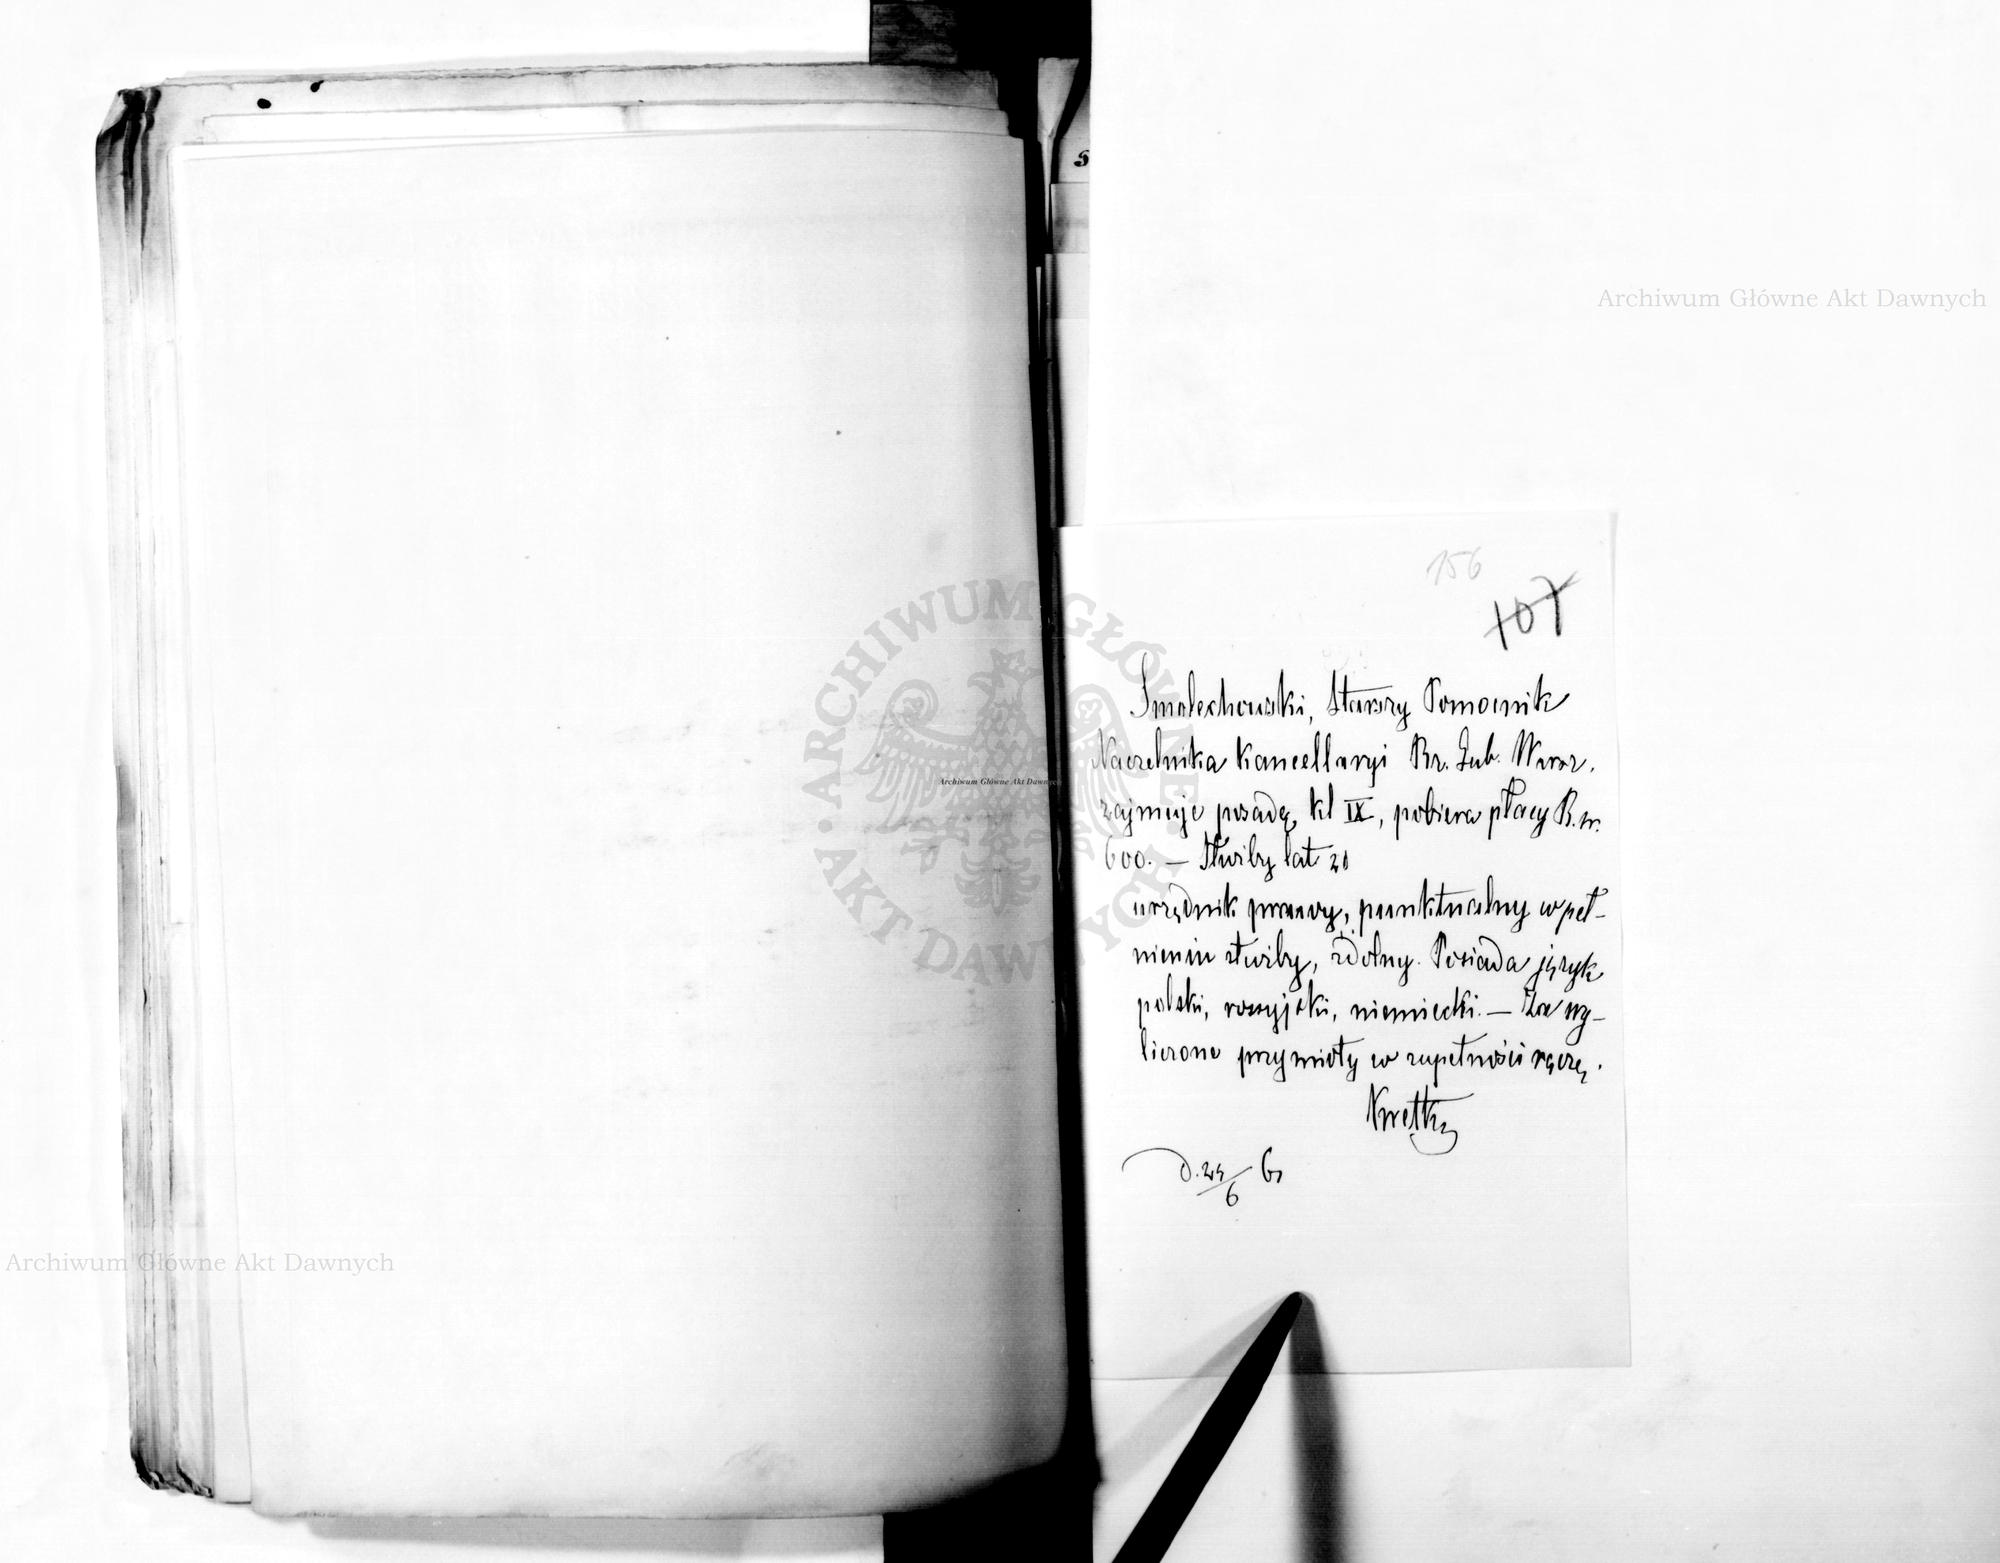 156
107
Smolechowski, Starszy Pomocnik
Naczelnika Kancellaryi Rz. Gub. Warsz.
zajmuje posadę kl IX, pobiera płacy R. sr.
600. — Służby lat 20
urzędnik prawy, punktualny w peł-
nieniu służby, zdolny. Posiada język
polski, rossyjski, niemiecki. — Za wy-
liczone przymioty w zupełności ręczę.
d. 24/6 61
Archiwum Główne Akt Dawnych
Archiwum Główne Akt Dawnych
Archiwum Główne Akt Dawnych
ARCHIWUM GŁÓWNE AKT DAWNYCH